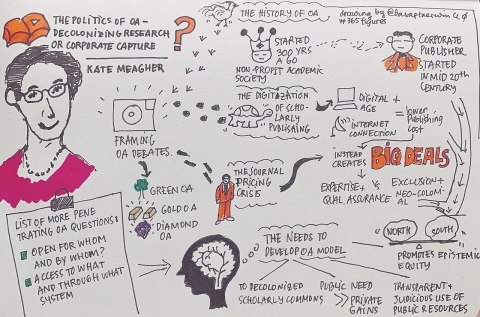 THE POLITICS OF OA -
DECOLONIZING RESEARCH
OR CORPORATE CAPTURE
?
KATE MEAGHER
THE HISTORY OF OA
#365figures
STARTED
300 YRS
AGO
NON-PROFIT ACADEMIC
SOCIETY
CORPORATE
PUBLISHER
STARTED
IN MID 20th
CENTURY
THE DIGITIZATION
OF SCHO-
LARLY
PUBLISHING
DIGITAL +
AGE
INTERNET
CONNECTION
= lower
Publishing
Cost
INSTEAD
CREATES
BIG DEALS
EXPERTISE+
QUAL ASSURANCE
VS
EXCLUSION+
NEO-COLONI-
AL
FRAMING
OA DEBATES
GREEN OA
GOLD OA
DIAMOND
OA
THE JOURNAL
PRICING
CRISIS
NORTH
SOUTH
PROMOTES EPISTEMIC
EQUITY
LIST OF MORE PENE
TRATING OA QUESTIONS:
OPEN FOR WHOM
AND BY WHOM?
ACCESS TO WHAT
AND THROUGH WHAT
SYSTEM
THE NEEDS TO
DEVELOP OA MODEL
TO DECOLONISED
SCHOLARLY COMMONS
PUBLIC NEED
>> PRIVATE
GAINS
TRANSPARENT+
JUDICIOUS USE OF
PUBLIC RESOURCES